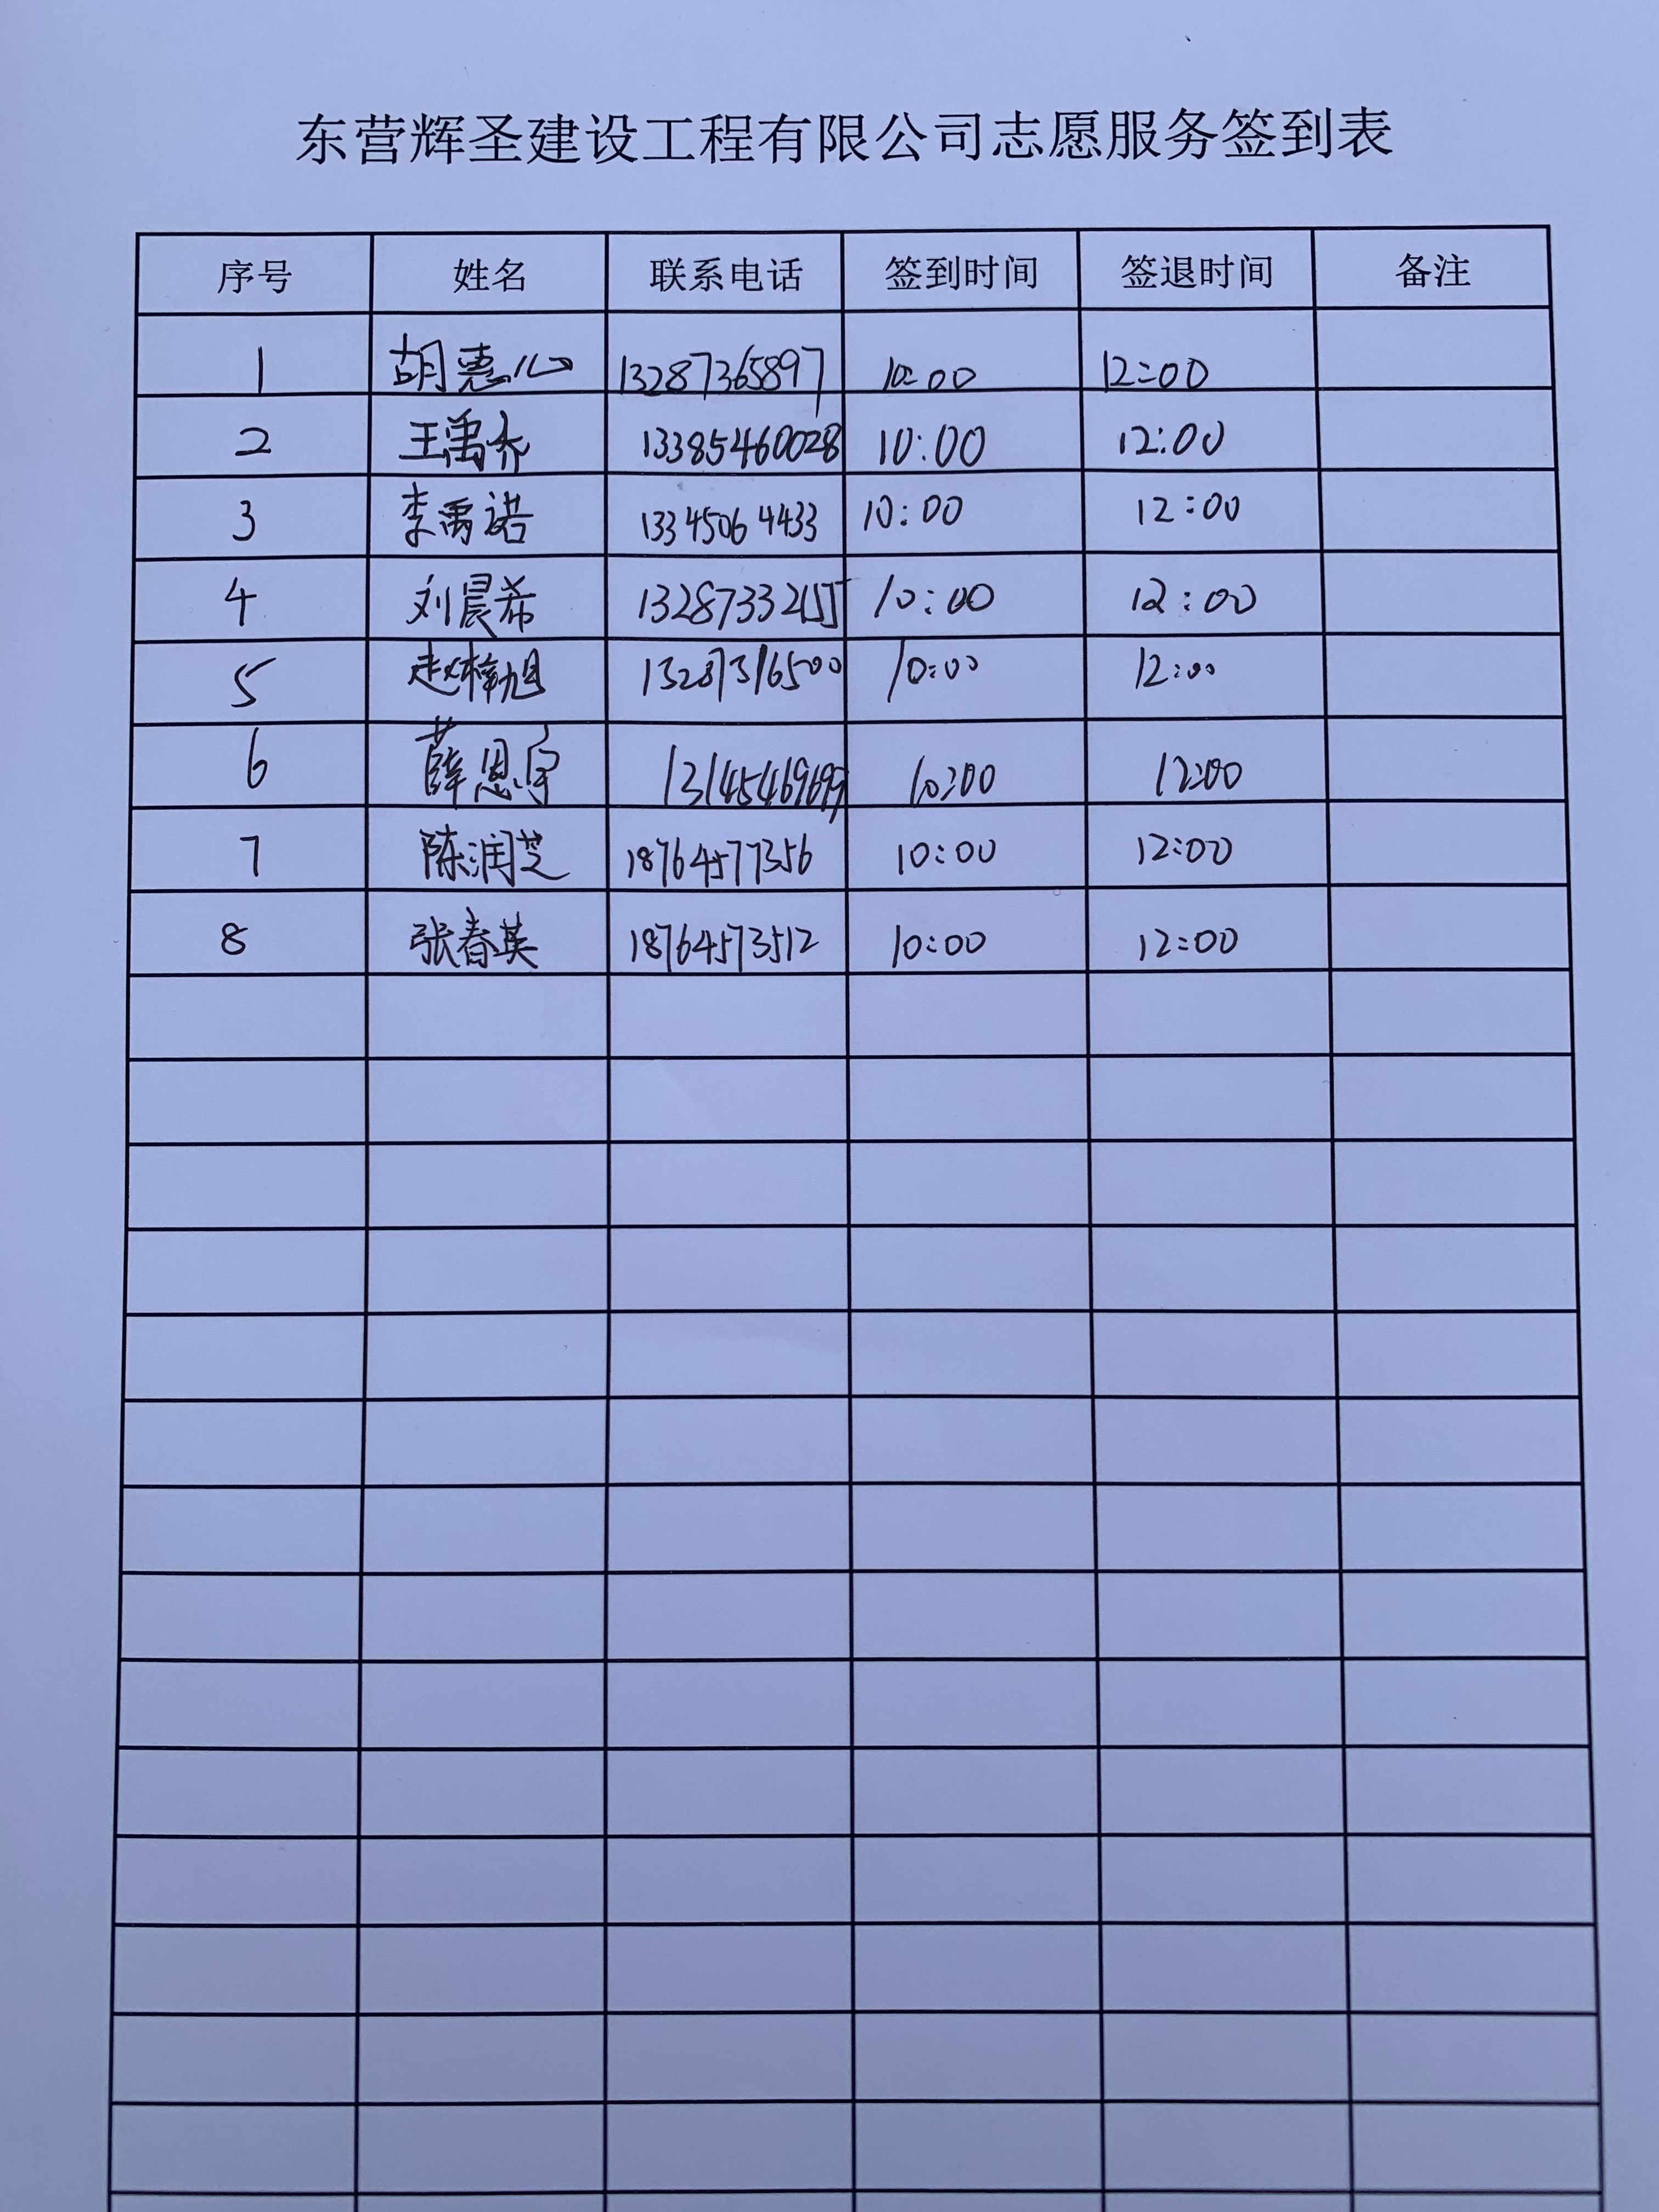 东营辉圣建设工程有限公司志愿服务签到表
序号 姓名 联系电话 签到时间 签退时间 备注
1 胡惠心 13287365897 10:00 12:00
2 王禹乔 13385460028 10:00 12:00
3 李禹诺 13345064433 10:00 12:00
4 刘晨希 13287332155 10:00 12:00
5 赵梓旭 13287316500 10:00 12:00
6 薛恩宇 10:00 12:00
7 陈润芝 18764577356 10:00 12:00
8 张春英 18764573512 10:00 12:00